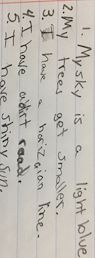 1. My sky is a light blue
2. My trees got smaller.
3. I have a horizoian line.
4. I have a dirt road.
5. I have shiny sun.